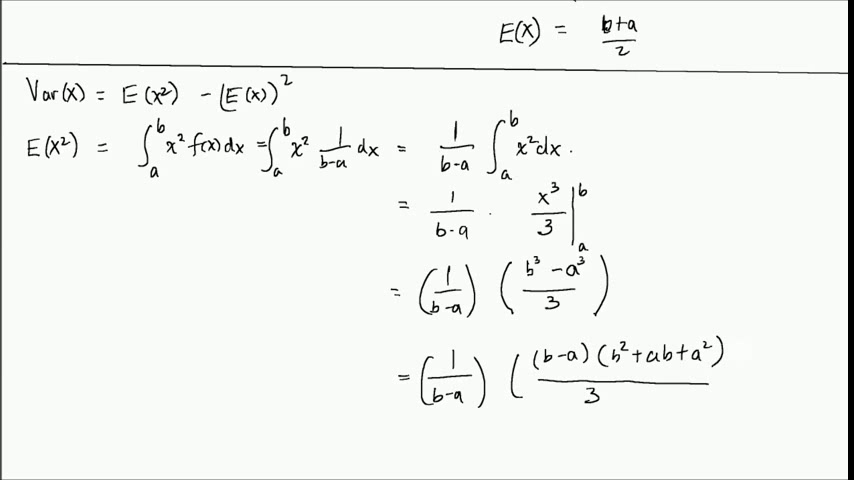 E(X) = b+a/2
Var(x) = E(x²) - (E(x))²
E(x²) = ∫_a^b x² f(x) dx = ∫_a^b x² 1/(b-a) dx = 1/(b-a) ∫_a^b x² dx.
= 1/(b-a) · x³/3 |_a^b
= (1/(b-a)) ((b³ - a³)/3)
= (1/(b-a)) ((b-a)(b²+ab+a²)/3